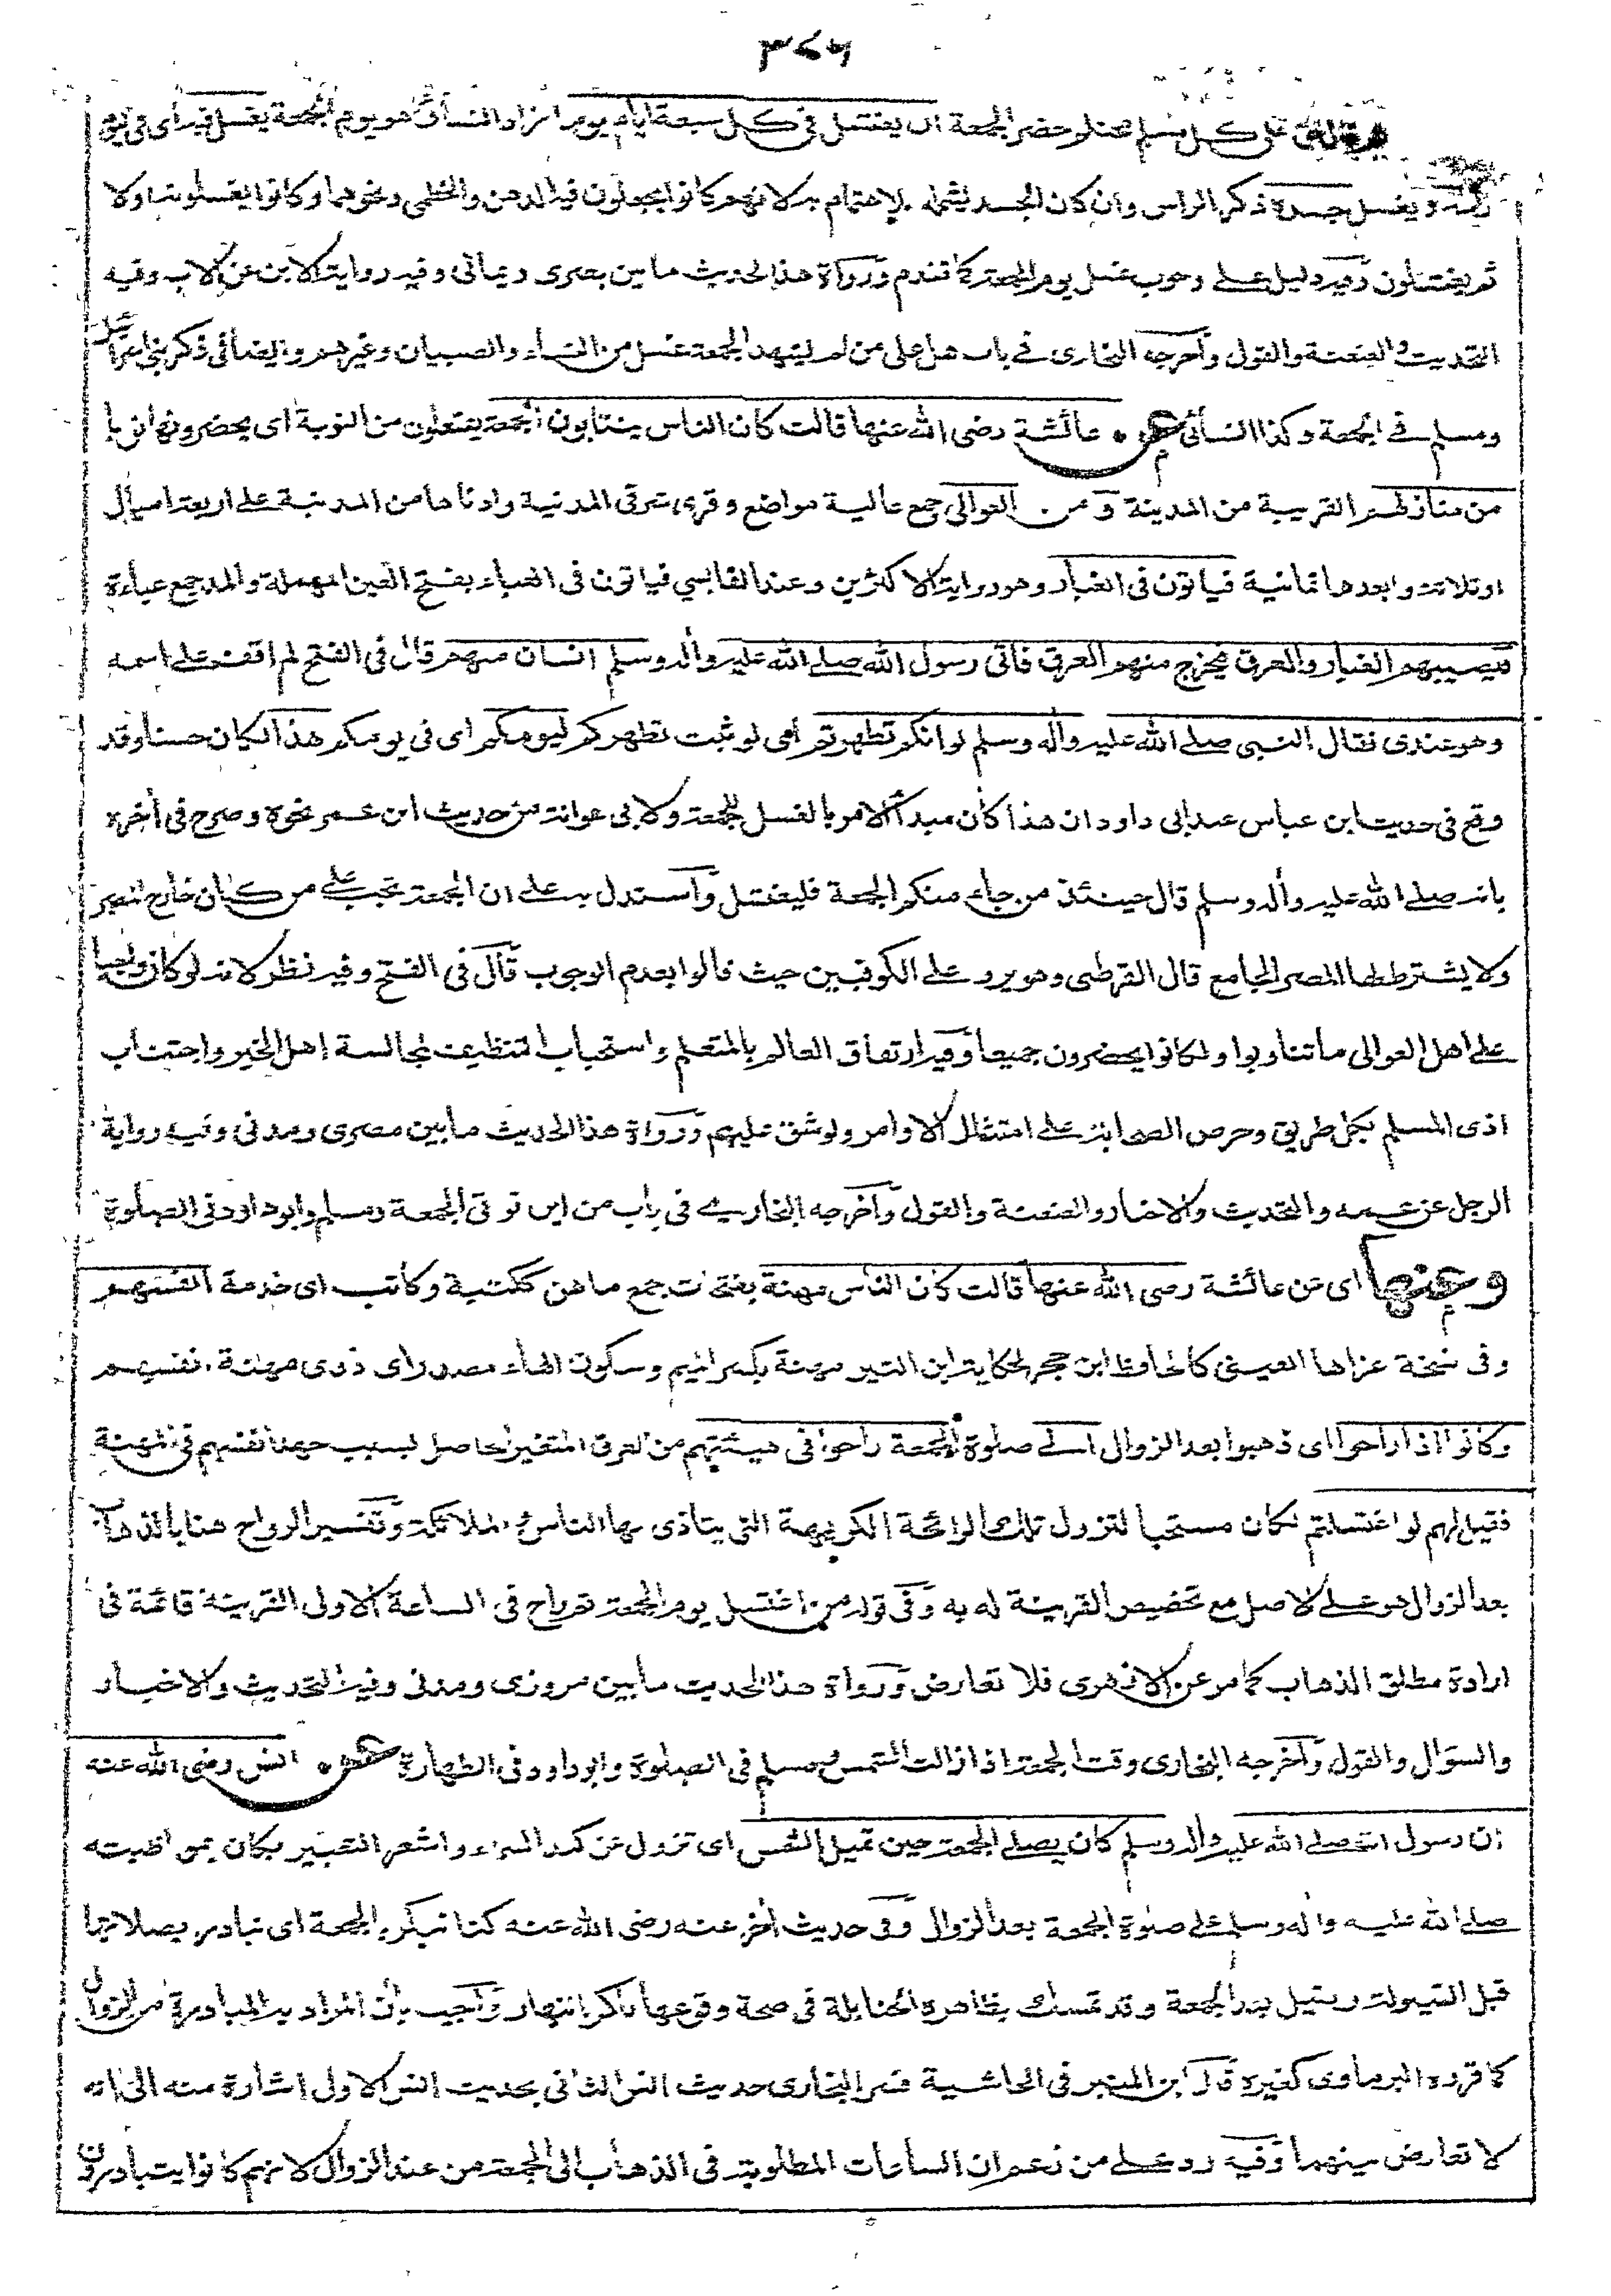 ٣٧٦
على كل مسلم محتلم حضر الجمعة ان يغتسل في كل سبعة ايام يوما زاد النسائي هو يوم الجمعة يغسل فيه اى في اليوم
راسه ويغسل جسده ذكر الراس وان كان الجسد يشمله للاهتمام به لانهم كانوا يجعلون فيه الدهن والخطمى ونحوهما وكانوا يغسلونه اولا
ثم يغتسلون وفيه دليل على وجوب غسل يوم الجمعة كما تقدم ورواة هذا الحديث ما بين بصرى ويمانى وفيه رواية الابن عن الاب وفيه
التحديث والعنعنة والقول وأخرجه البخارى في باب هل على من لم يشهد الجمعة غسل من النساء والصبيان وغيرهم وايضا فى ذكر بنى اسرائيل
ومسلم في الجمعة وكذا النسائى عن عائشة رضى الله عنها قالت كان الناس ينتابون الجمعة يفتعلون من النوبة اى يحضرونها نوبا
من منازلهم القريبة من المدينة ومن العوالى جمع عالية مواضع وقرى شرقى المدينة وادناها من المدينة على اربعة اميال
او ثلاثة وابعدها ثمانية فياتون فى الغبار وهو رواية الاكثرين وعند القابسي فياتون فى العباء بفتح العين المهملة والمد جمع عباءة
فيصيبهم الغبار والعرق فيخرج منهم العرق فاتى رسول الله صلے الله عليه وأله وسلم انسان منهم قال فى الفتح لم اقف على اسمه
وهو عندى فقال النبى صلے الله عليه وأله وسلم لو انكم تطهرتم اى لو ثبت تطهركم ليومكم اى فى يومكم هذا لكان حسنا وقد
وقع فى حديث ابن عباس عند ابى داود ان هذا كان مبدأ الامر بالغسل للجمعة ولابى عوانة من حديث ابن عمر نحوه وصرح فى أخره
بانه صلے الله عليه وأله وسلم قال حينئذ من جاء منكم الجمعة فليغتسل وأستدل به على ان الجمعة تجب على من كان خارج المصر
ولا يشترط لها المصر الجامع قال القرطبى وهو يرد على الكوفيين حيث قالوا بعدم الوجوب قال فى الفتح وفيه نظر لانه لو كان واجبا
على اهل العوالى ما تناوبوا ولكانوا يحضرون جميعا وفيه ارتفاق العالم بالمتعلم واستحباب التنظيف لمجالسة اهل الخير واجتناب
اذى المسلم بكل طريق وحرص الصحابة على امتثال الاوامر ولو شق عليهم ورواة هذا الحديث ما بين مصرى ومدنى وفيه رواية
الرجل عن عمه والتحديث والاخبار والعنعنة والقول وأخرجه البخارى في باب من اين توتى الجمعة ومسلم وابو داود فى الصلوة
وعنها اى عن عائشة رضى الله عنها قالت كان الناس مهنة بفتحات جمع ماهن ككتبة وكاتب اى خدمة انفسهم
وفى نسخة عزاها العينى كالحافظ ابن حجر لحكاية ابن التين مهنة بكسر الميم وسكون الهاء مصدر اى ذوى مهنة انفسهم
وكانوا اذا راحوا اى ذهبوا بعد الزوال الے صلوة الجمعة راحوا فى هيئتهم من العرق المتغير الحاصل بسبب جهد انفسهم فى المهنة
فقيل لهم لو اغتسلتم لكان مستحبا لتزول تلك الرائحة الكريهة التى يتاذى بها الناس والملائكة وتفسير الرواح هنا بالذهاب
بعد الزوال هو على الاصل مع تخصيص القرينة له به وفى قوله من اغتسل يوم الجمعة ثم راح فى الساعة الاولى القرينة قائمة فى
ارادة مطلق الذهاب كما مر عن الازهرى فلا تعارض ورواة هذا الحديث ما بين مروزى ومدنى وفيه التحديث والاخبار
والسؤال والقول وأخرجه البخارى وقت الجمعة اذا زالت الشمس ومسلم فى الصلوة وابو داود فى الطهارة عن انس رضى الله عنه
ان رسول الله صلے الله عليه وأله وسلم كان يصلے الجمعة حين تميل الشمس اى تزول عن كبد السماء واشعر التعبير بكان بمواظبته
صلے الله عليه وأله وسلم على صلوة الجمعة بعد الزوال وفى حديث أخر عنه رضى الله عنه كنا نبكر بالجمعة اى نبادر بصلاتها
قبل القيلولة ونقيل بعد الجمعة وقد تمسك بظاهره الحنابلة فى صحة وقوعها باكر النهار وأجيب بأن المراد به المبادرة من الزوال
كما قرره البرماوى كغيره قال ابن المنير فى الحاشية فسر البخارى حديث انس الثانى بحديث انس الاول اشارة منه الى انه
لا تعارض بينهما وفيه رد على من زعم ان الساعات المطلوبة فى الذهاب الى الجمعة من عند الزوال لانهم كانوا يتبادرون